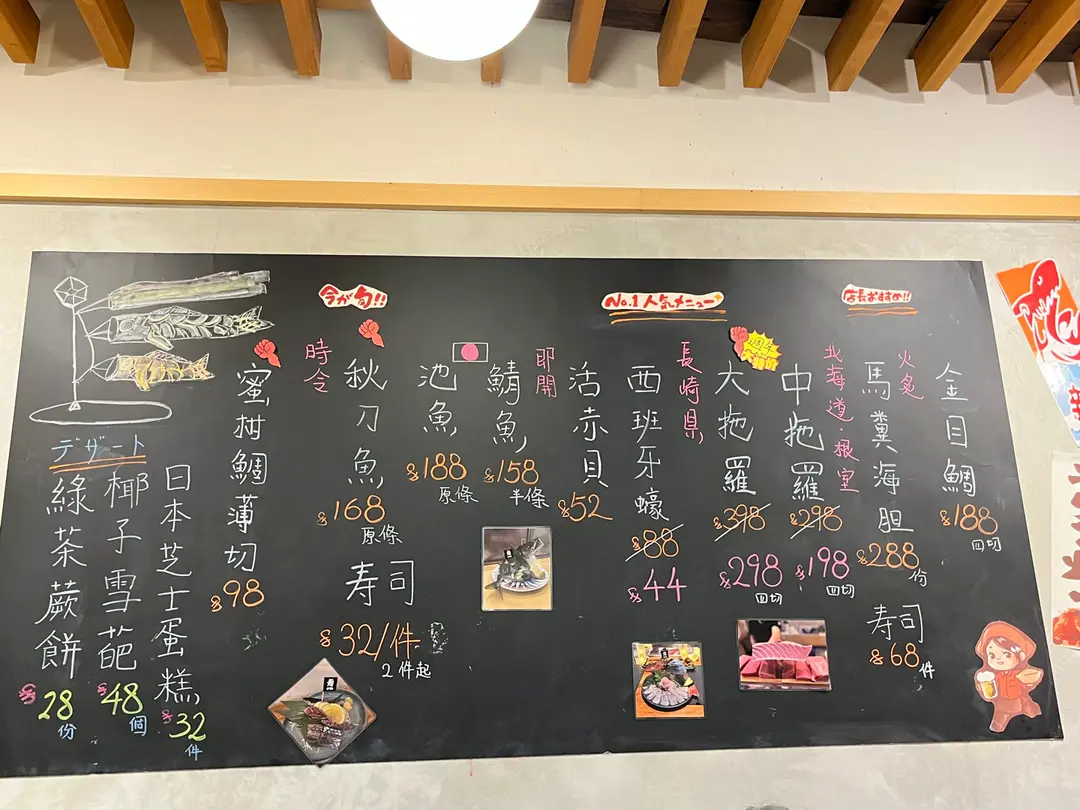 店長おすすめ!!
金目鯛
$188
四切
火炙
馬糞海胆
$288
份
寿司
$68件
北海道・根室
No.1人気メニュー
中拖羅
$298
$198
四切
大拖羅
$398
$298
四切
長崎県
西班牙蠔
$88
$44
活赤貝
$52
即開
鯖魚
$158
半條
池魚
$188
原條
今が旬!!
秋刀魚
$168
原條
寿司
$32/件
2件起
時令
蜜柑鯛薄切
$98
デザート
日本芝士蛋糕
$32
件
椰子雪葩
$48
個
綠茶蕨餅
$28
份